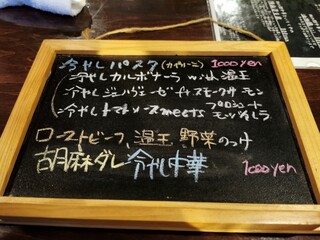 冷やしパスタ(カッペリーニ) 1000yen
冷やしカルボナーラ with 温玉
冷やしジェノヴェーゼ ft スモークサーモン
冷やしトマトソース meets プロシュート モッツァレラ
ローストビーフ、温玉 野菜のっけ
胡麻ダレ 冷やし中華 1000yen